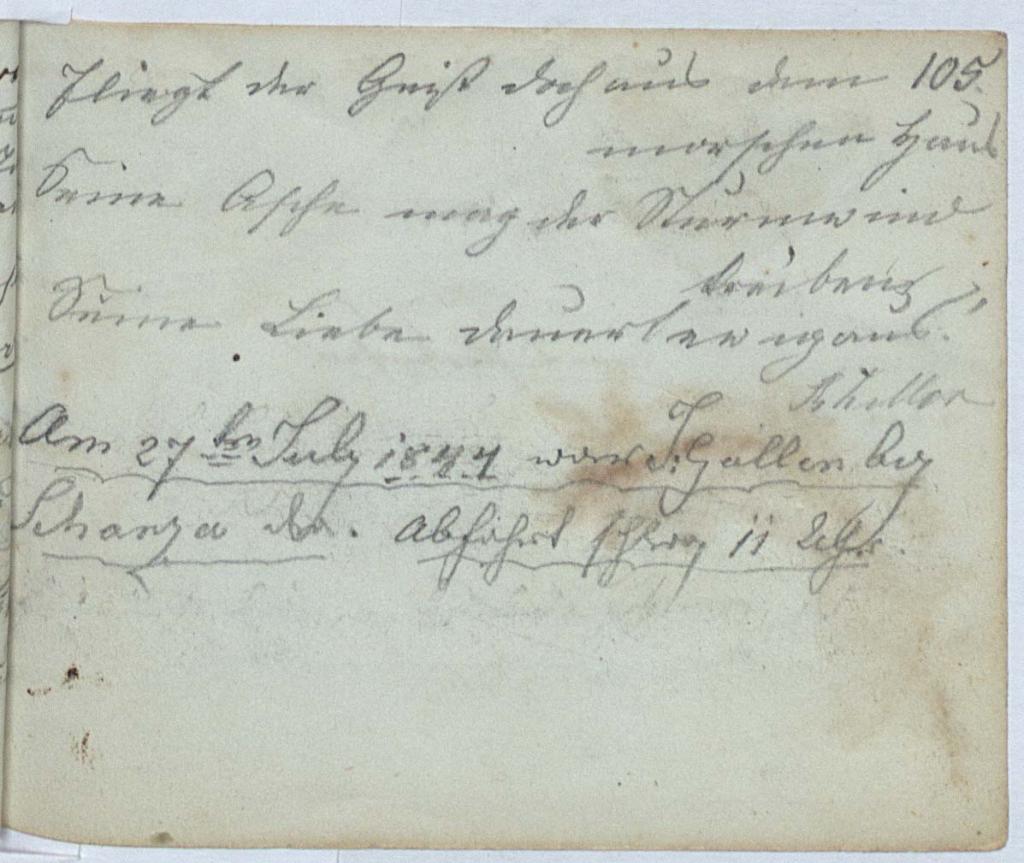 Fliegt der Geist doch aus dem 105.
morschen Haus
Seine Asche mag der Sturmwind
treiben,
Seine Liebe dauert ewig aus.
Schiller
Am 27ten July 1844 war
Abfahrt 11 Uhr.